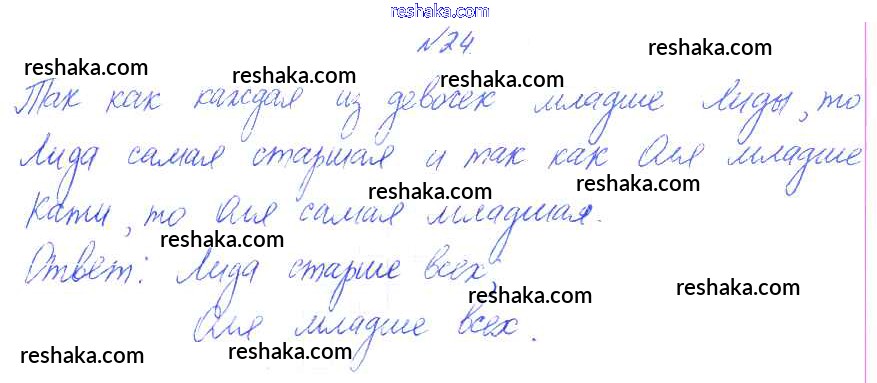 reshaka.com
№24.
reshaka.com
reshaka.com
reshaka.com
reshaka.com
Так как каждая из девочек младше Лиды, то
Лида самая старшая и так как Оля младше
reshaka.com
reshaka.com
Кати, то Оля самая младшая.
reshaka.com
Ответ: Лида старше всех,
reshaka.com
reshaka.com
Оля младше всех.
reshaka.com
reshaka.com